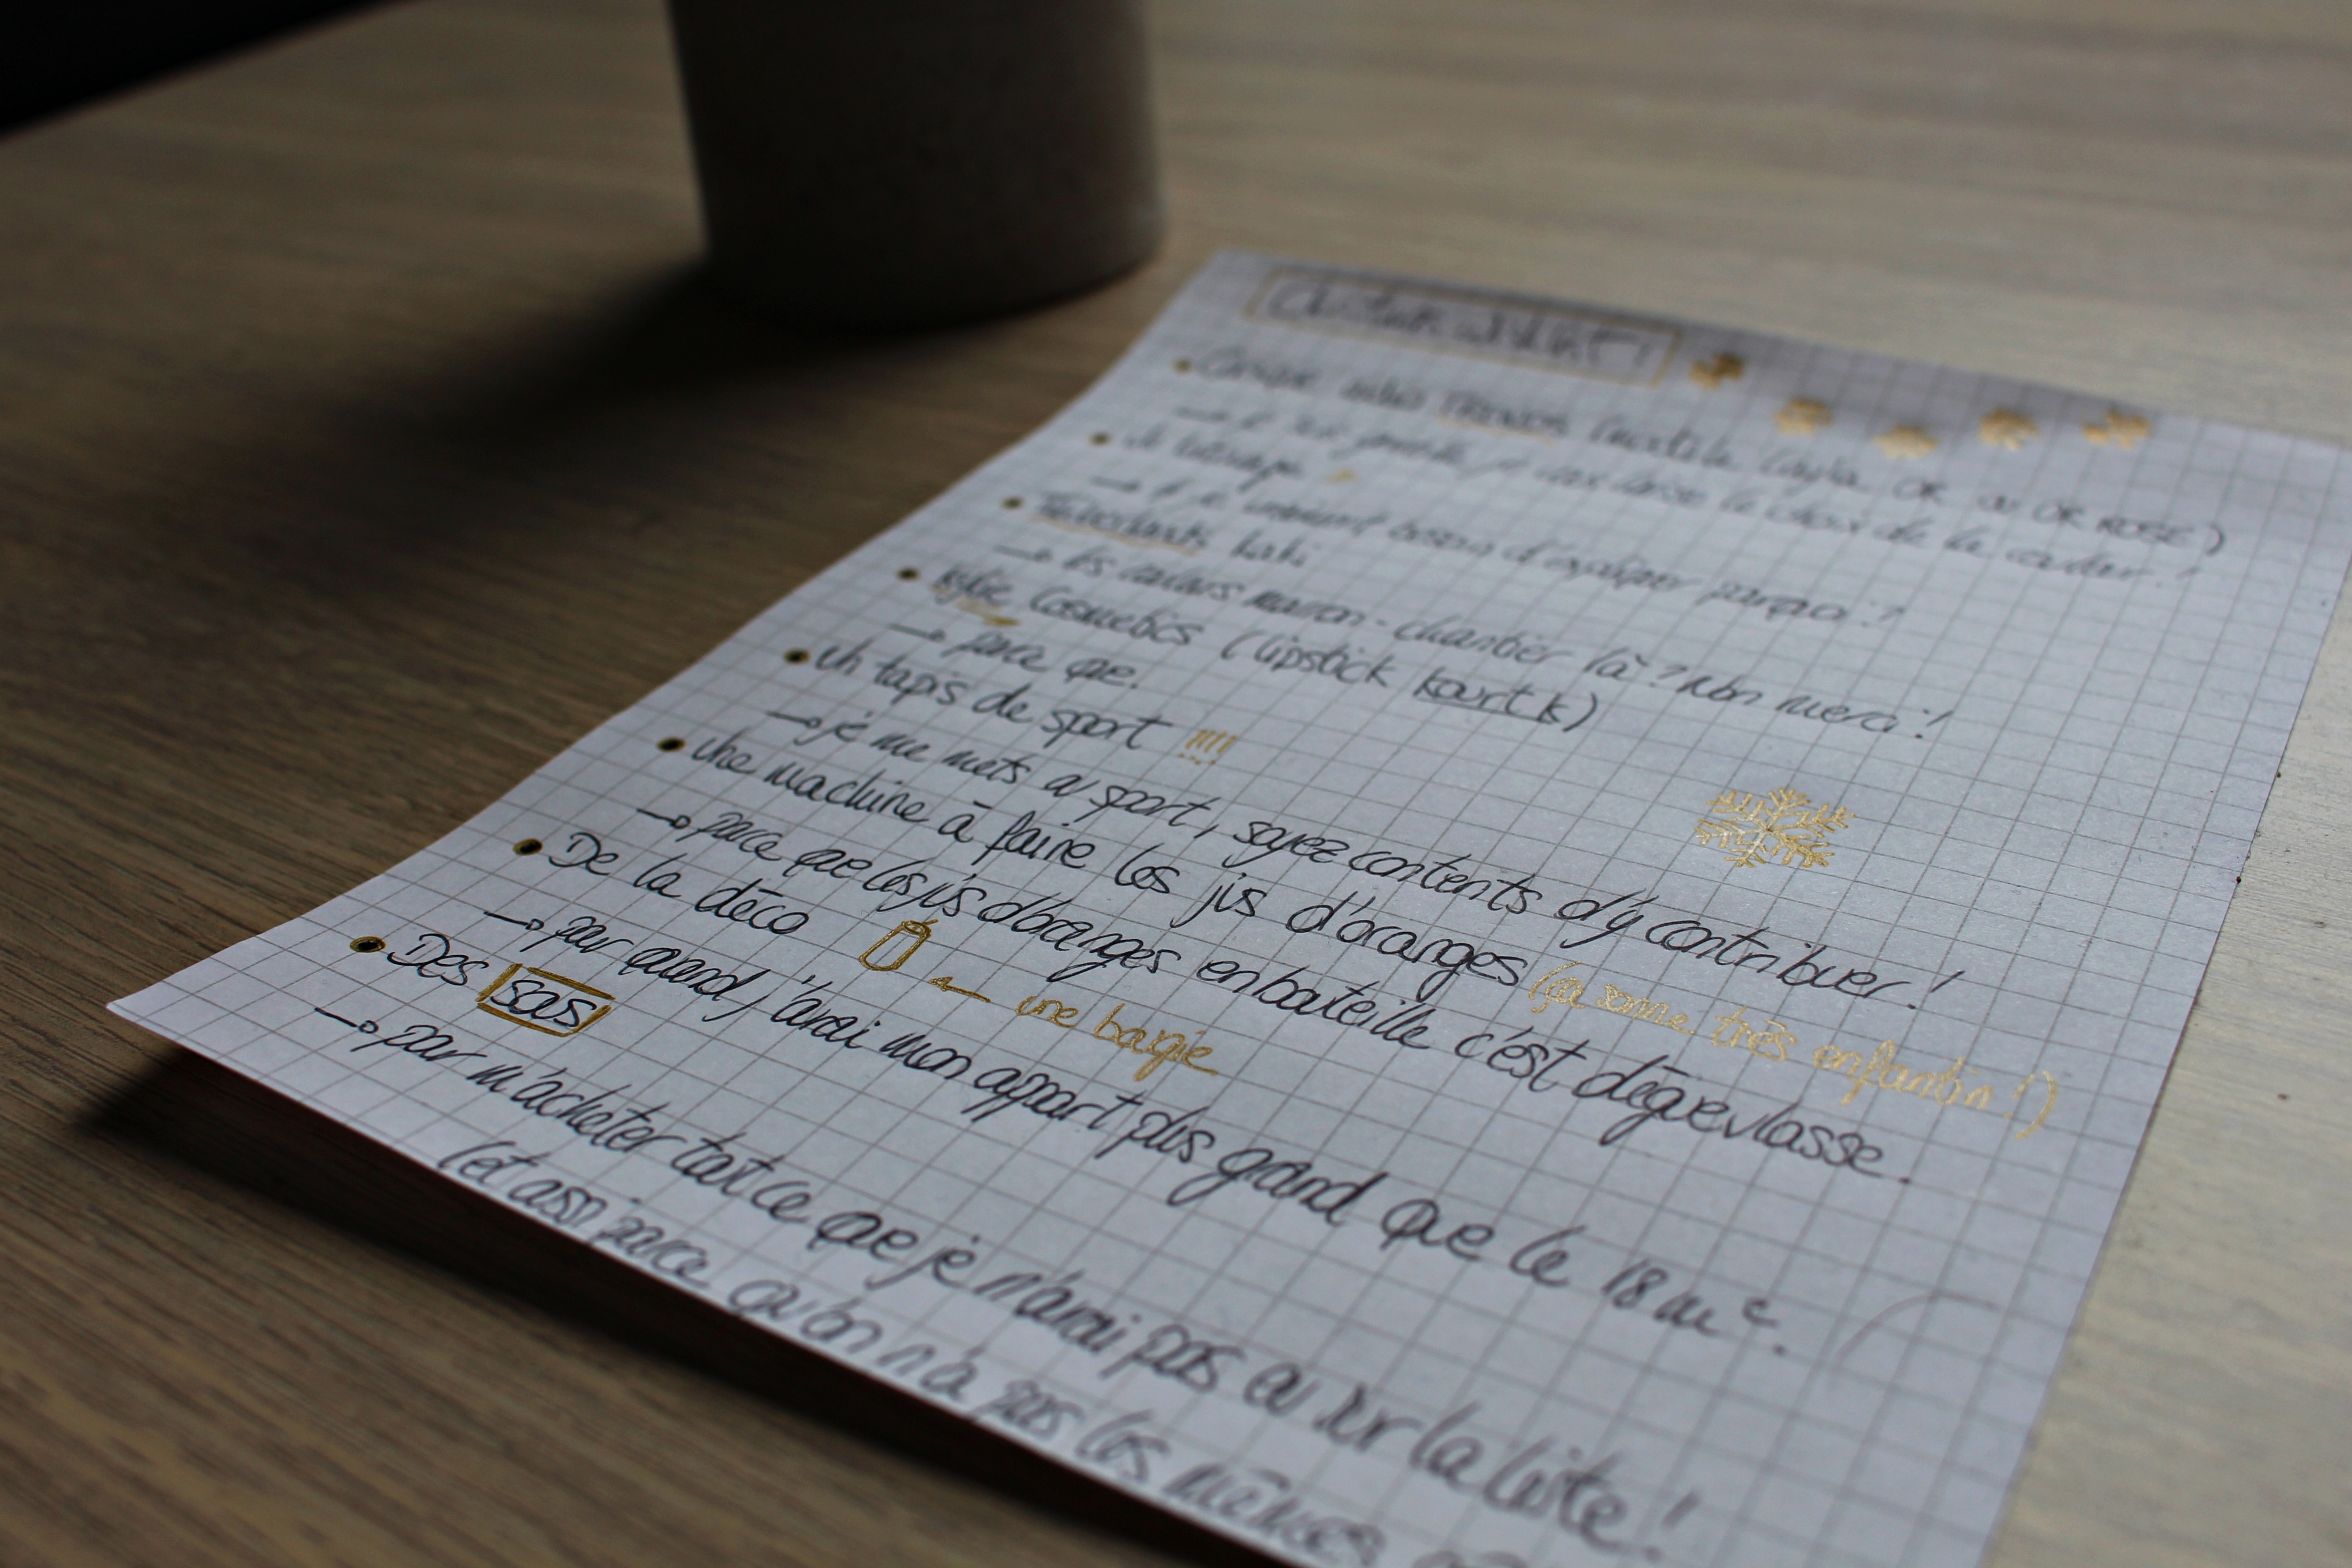 Casque audio (modèle Layla OR ou OR ROSE)
→ je vous laisse le choix de la couleur !
Un
→ j'ai vraiment besoin d'expliquer pourquoi ?
Timberlands kaki
→ les couleurs marron-chantier là ? Non merci !
Kylie Cosmetics (lipstick Kourt K)
→ parce que.
Un tapis de sport !!!!
→ je me mets au sport, soyez contents d'y contribuer !
Une machine à faire les jus d'oranges (ça sonne très enfantin !)
→ parce que les jus d'oranges en bouteille c'est dégueulasse.
De la déco ← une bougie
→ pour quand j'aurai mon appart plus grand que le 18 m².
Des sous
→ pour m'acheter tout ce que je n'aurai pas eu sur la liste !
(et aussi parce qu'on n'a pas les mêmes